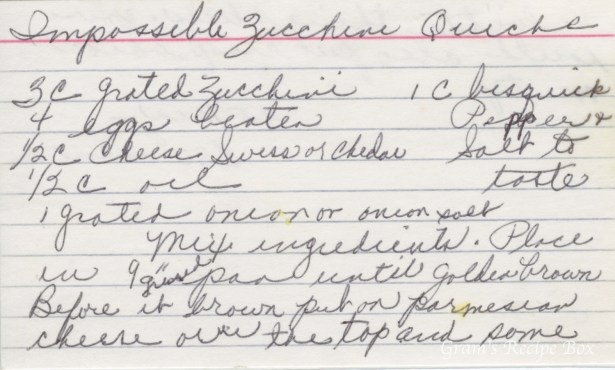 Impossible Zucchini Quiche
3 C grated Zucchini 1 C bisquick
4 eggs beaten Pepper +
1/2 C Cheese Swiss or Chedar Salt to
1/2 C oil taste
1 grated onion or onion salt
Mix ingredients. Place
in 9" greased pan until golden brown
Before it brown put on parmesian
cheese over the top and some
Gram's Recipe Box